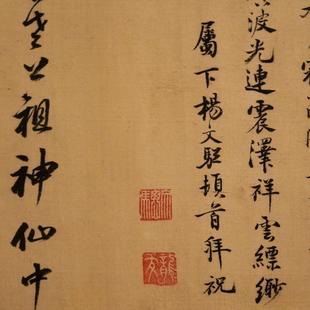 波光連震澤祥雲縹緲
屬下楊文驄頓首拜祝
龍友
老公祖神仙中